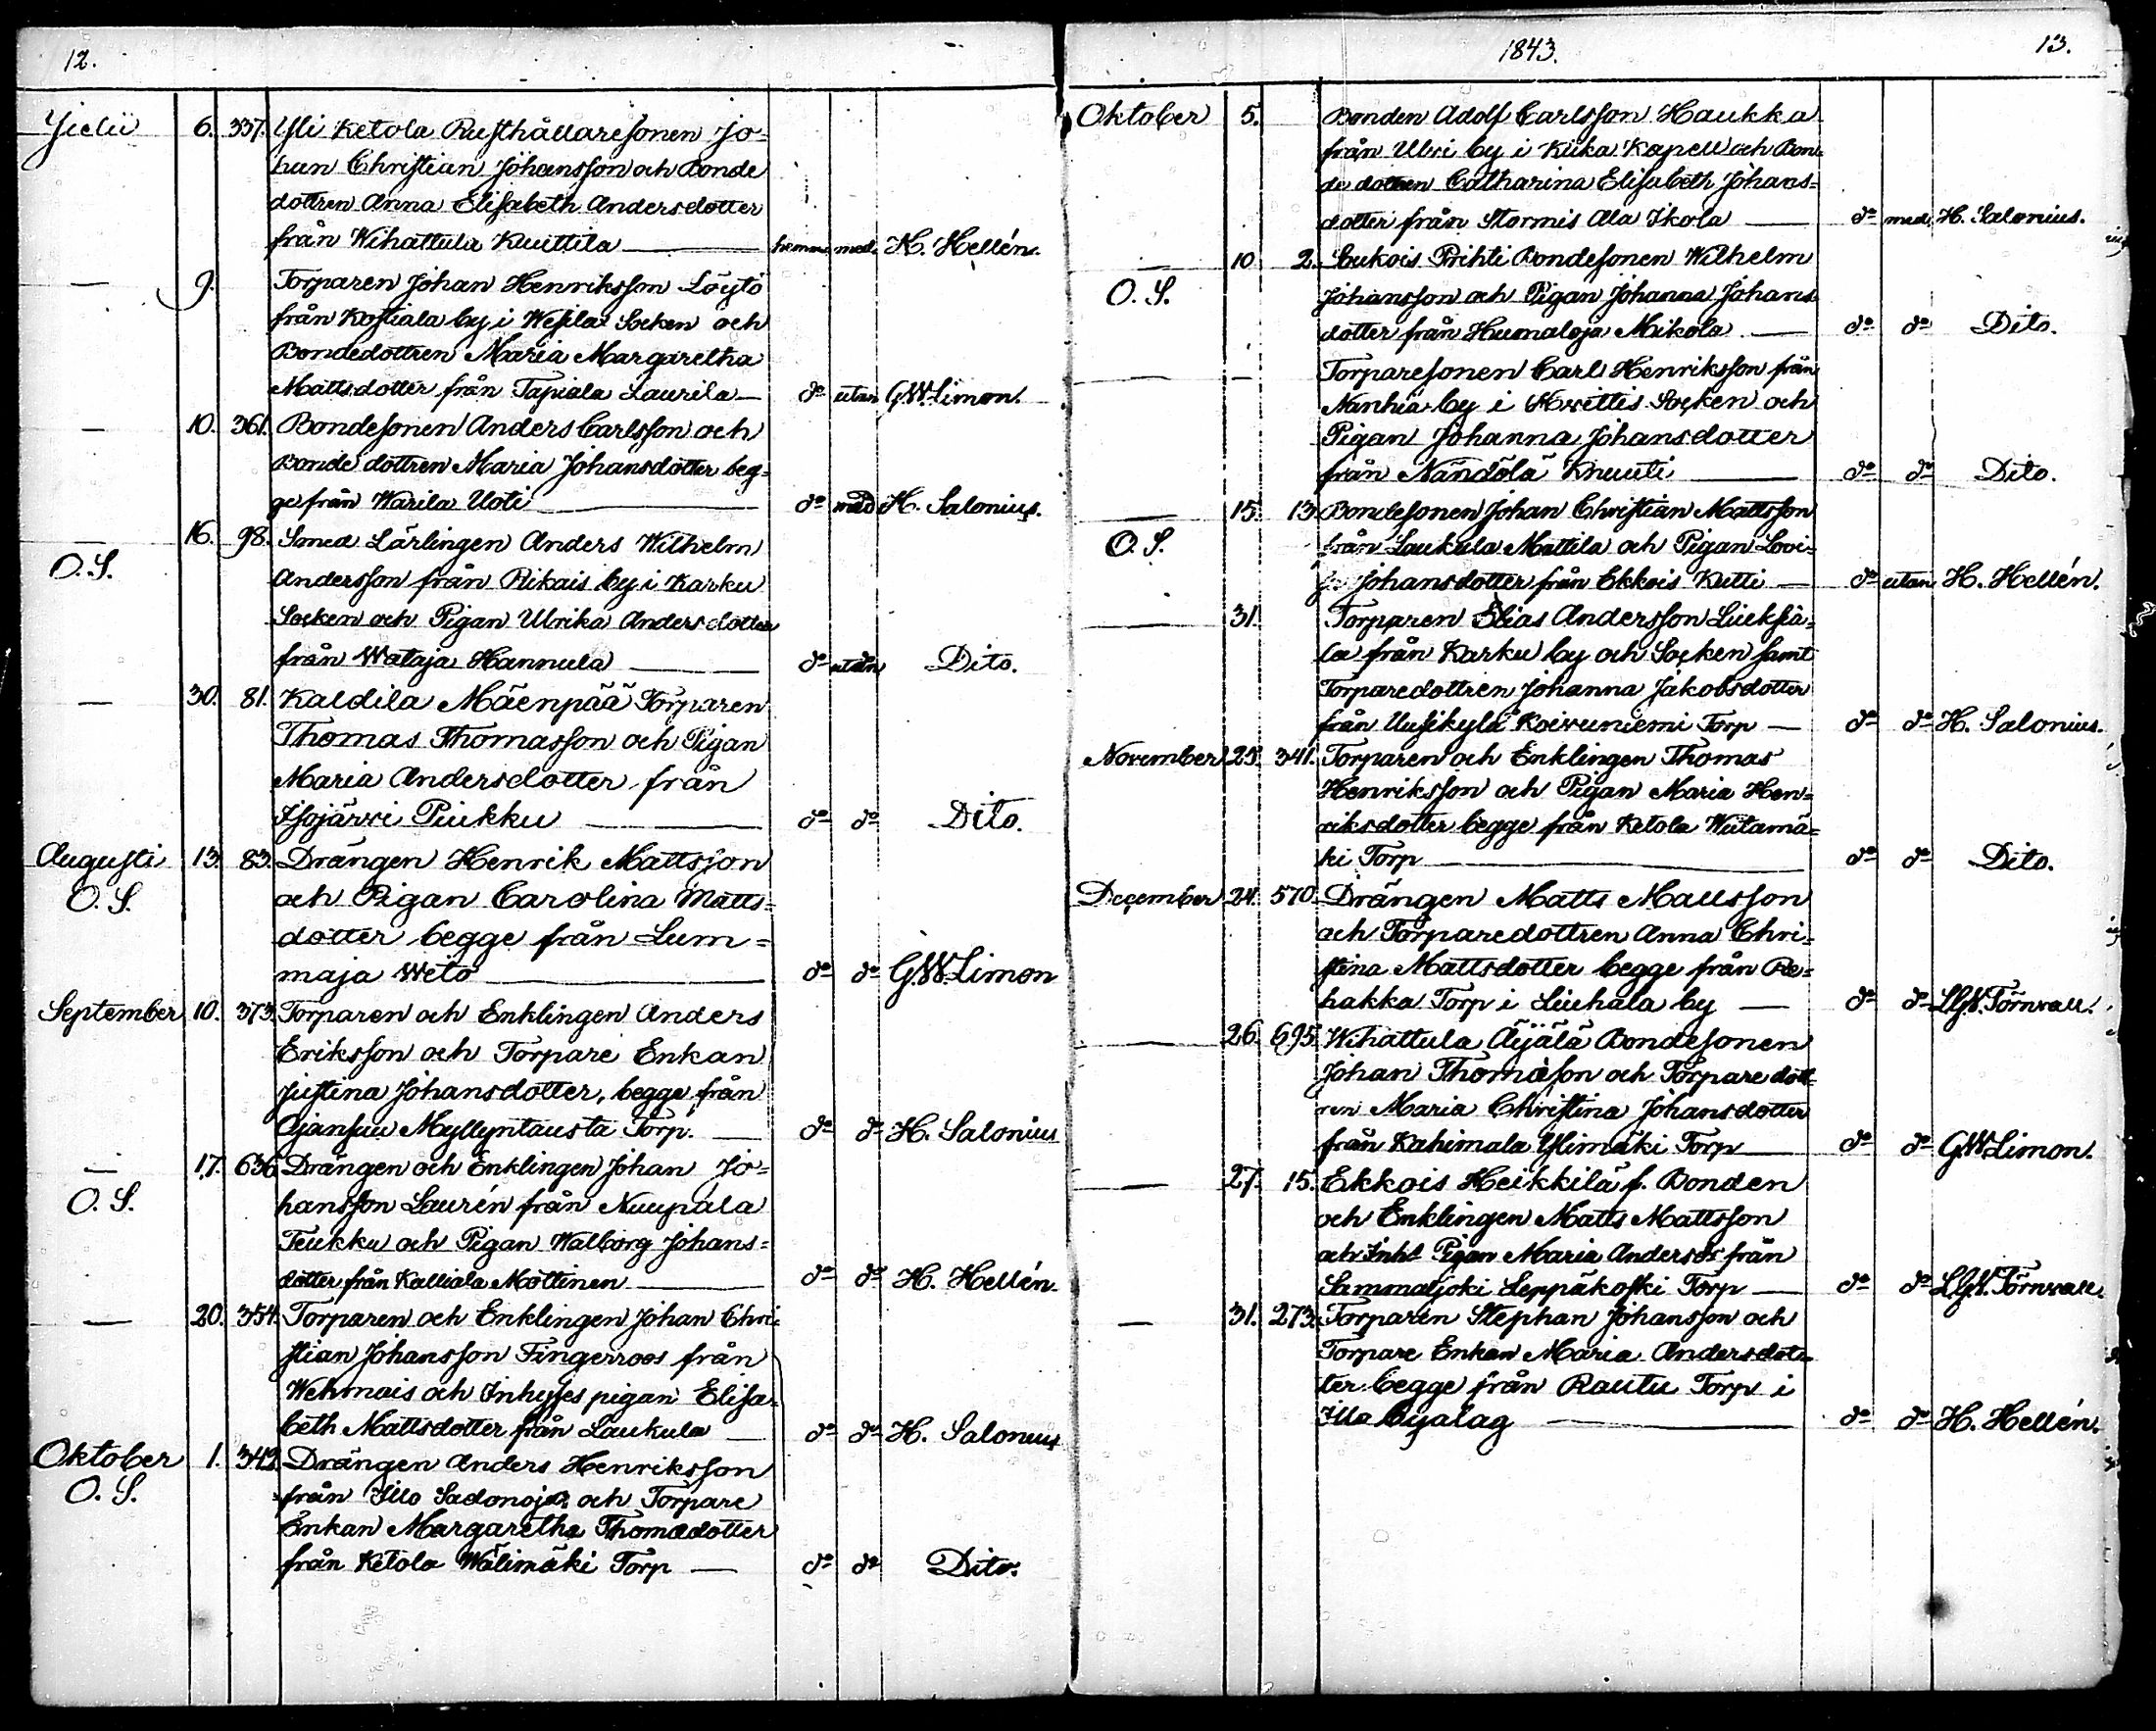 12.
Julii 6. 337. Yli Ketola Rusthållaresonen Jo-
han Christian Johansson och Bonde
dottren Anna Elisabeth Andersdotter
från Wihattula Kuuttila — hemma med. H. Hellén.
— 9. Torparen Johan Henriksson Löytö
från Kostiala by i Wesila Socken och
Bondedottren Maria Margaretha
Mattsdotter från Tapiala Laurila — do utan G.W. Limon.
— 10. 361. Bondesonen Anders Carlsson och
Bonde dottren Maria Johansdotter beg-
ge från Warila Uoti — do med H. Salonius.
— 16. 98. Smed Lärlingen Anders Wilhelm
O.S. Andersson från Rikais by i Karku
Socken och Pigan Ulrika Andersdotter
från Wataja Hannula — do utan Dito.
— 30. 81. Kaldila Mäenpää Torparen
Thomas Thomasson och Pigan
Maria Andersdotter från
Isojärwi Piukku — do do Dito.
Augusti 13. 83. Drängen Henrik Mattsson
O.S. och Pigan Carolina Matts-
dotter begge från Lum=
maja Weto — do do G.W. Limon
September 10. 373. Torparen och Enklingen Anders
Eriksson och Torpare Enkan
Justina Johansdotter, begge från
Ojansuu Myllyntausta Torp. — do do H. Salonius
— 17. 636 Drängen och Enklingen Johan Jo=
O.S. hansson Laurén från Nuupala
Teukku och Pigan Walborg Johans=
dotter från Kalliala Möttinen — do do H. Hellén.
— 20. 354. Torparen och Enklingen Johan Chri-
stian Johansson Fingerroos från
Wehmais och Inhyses pigan Elisa-
beth Mattsdotter från Laukula — do do H. Salonius
Oktober 1. 342. Drängen Anders Henriksson
O.S. från Illo Sadonoja och Torpare
Enkan Margaretha Thomædotter
från Ketola Wälimäki Torp — do do Dito.
1843. 13.
Oktober 5. Bonden Adolf Carlsson Haukka
från Ulvi by i Kiika Kapell och Bon-
de dottren Catharina Elisabeth Johans=
dotter från Stormis Ala Ikola — do med. H. Salonius.
— 10 2. Soukois Prihti Bondesonen Wilhelm
O.S. Johansson och Pigan Johanna Johans
dotter från Humaloja Mikola — do do Dito.
— - Torparesonen Carl Henriksson från
Nanhia by i Hvittis Socken och
Pigan Johanna Johansdotter
från Nändölä Knuuti — do do Dito.
— 15. 13 Bondesonen Johan Christian Mattsson
O.S. från Laukula Mattila och Pigan Lovi-
sa Johansdotter från Ekkois Kutti — do utan H. Hellén.
— 31. Torparen Elias Andersson Liuksia-
la från Karku by och Socken samt
Torparedottren Johanna Jakobsdotter
från Uusikylä Koivuniemi Torp — do do H. Salonius.
November 25. 341. Torparen och Enklingen Thomas
Henriksson och Pigan Maria Hen=
riksdotter begge från Ketola Wiitamä=
ki Torp — do do Dito.
December 24. 570 Drängen Matts Mattsson
och Torparedottren Anna Chri-
stina Mattsdotter begge från Re=
hakka Torp i Liuhala by — do do L.G.W. Törnvall.
— 26. 695 Wihattula Äijälä Bondesonen
Johan Thomæson och Torpare dott-
ren Maria Christina Johansdotter
från Kahimala Ylimäki Torp — do do G.W. Limon.
— 27. 15. Ekkois Heikkilä f. Bonden
och Enklingen Matts Mattsson
och Inhs Pigan Maria Andersdr från
Sammaljoki Leppäkoski Torp — do do L.G.W. Törnvall.
— 31. 273. Torparen Stephan Johansson och
Torpare Enkan Maria Andersdot-
ter begge från Rautu Torp i
Illo byalag — do do H. Hellén.